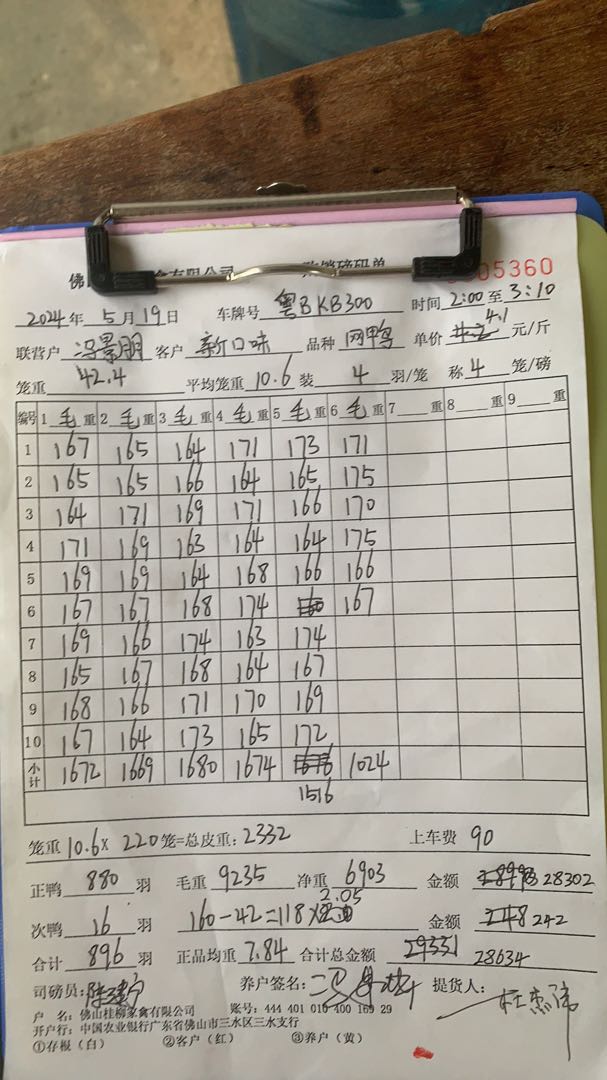 佛 禽有限公司 购销磅码单 05360
2024年 5月19日 车牌号 粤BKB300 时间 2:00至3:10
联营户 冯景朋 客户 新口味 品种 网鸭 单价 4.1 元/斤
笼重 42.4 平均笼重 10.6 装 4 羽/笼 称 4 笼/磅
编号 1 毛 重 2 毛 重 3 毛 重 4 毛 重 5 毛 重 6 毛 重 7 重 8 重 9 重
1 167 165 164 171 173 171
2 165 165 166 164 165 175
3 164 171 169 171 166 170
4 171 169 163 164 164 175
5 169 169 164 168 166 166
6 167 167 168 174 160 167
7 169 166 174 163 174
8 165 167 168 164 167
9 168 166 171 170 169
10 167 164 173 165 172
小计 1672 1669 1680 1674 1676 1024
1516
笼重 10.6× 220笼=总皮重:2332 上车费 90
正鸭 880 羽 毛重 9235 净重 6903 金额 28302
2.05
次鸭 16 羽 160-42=118× 金额 248 242
合计 896 羽 正品均重 7.84 合计总金额 29331 28634
司磅员: 养户签名: 提货人:
户 名:佛山桂柳家禽有限公司 账号:444 401 010 400 169 29
开户行:中国农业银行广东省佛山市三水区三水支行
①存根(白) ②客户(红) ③养户(黄)